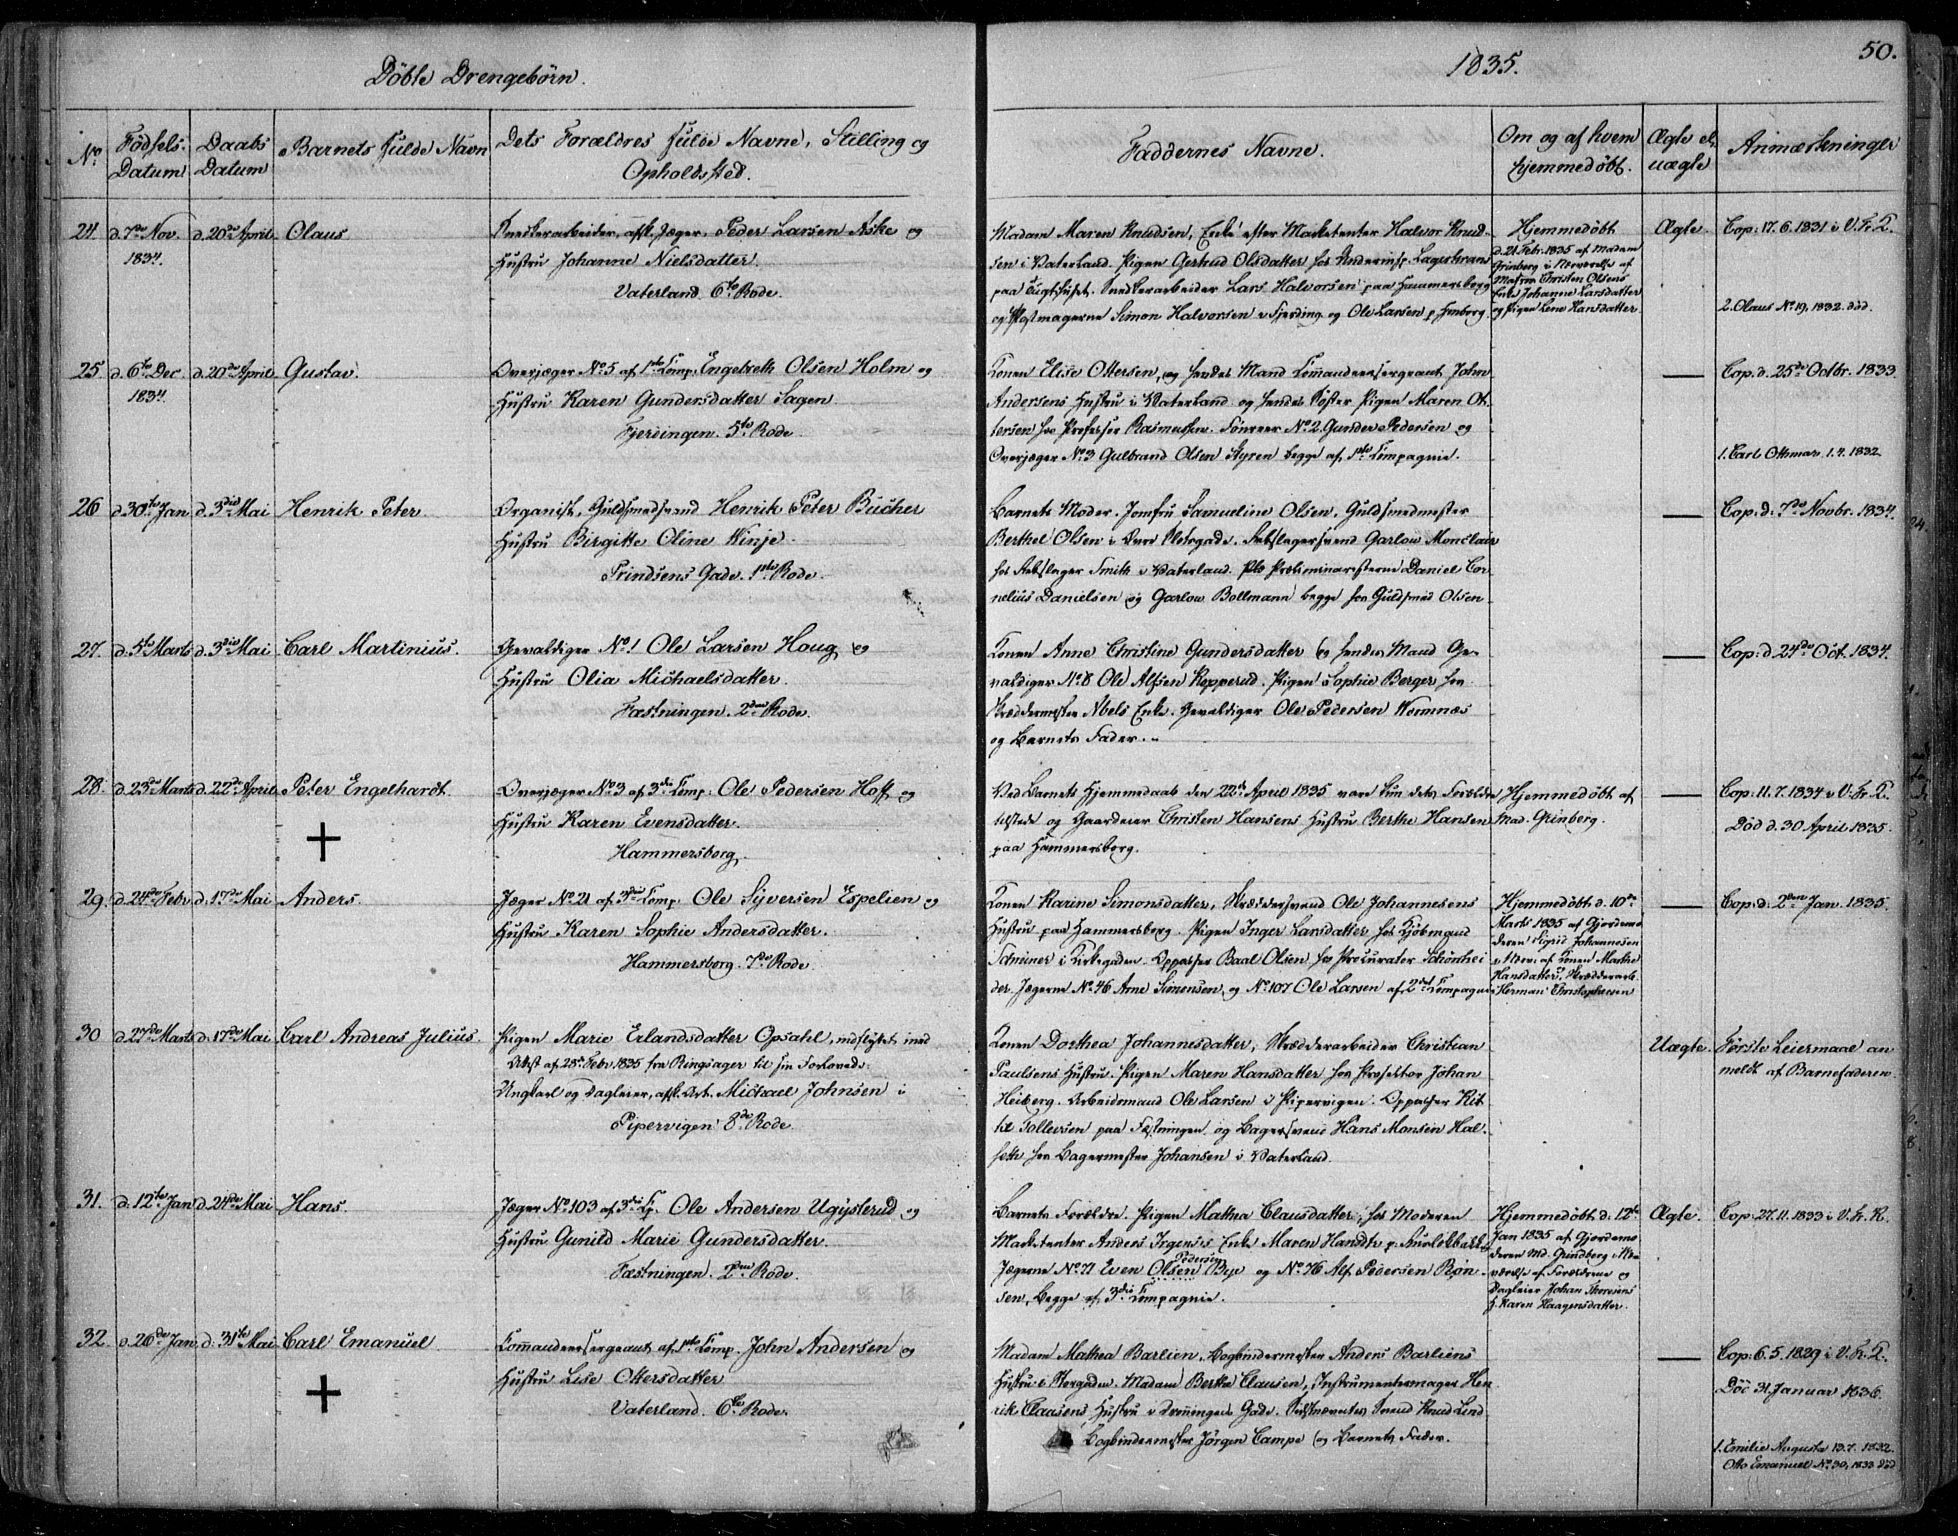 Döbte Drengebörn.
1835.
50.
No
Födsels-
Datum
Daabs
Datum
Barnets fulde Navn
Dets Forældres fulde Navne, Stilling og
Opholdsted.
Faddernes Navne.
Om og af hvem
hjemmedöbt.
Ægte el.
uægte
Anmærkninger
24. d. 7de Nov. d. 20de April Olaus
1834.
Snedkerarbeider, afsk. Jæger, Peder Larsen Aske og
Hustru Johanne Nielsdatter.
Vaterland. 6te Rode.
Madam Maren Knudsen, Enke efter Marketenter Halvor Knud-
sen i Vaterland. Pigen Gertrud Olsdatter hos Underinsp. Lagerkrans
paa Tugthuset. Snedkerarbeider Lars Halvorsen paa Hammersborg
og Postmagerne Simon Halvorsen i Fjerding. og Ole Larsen p. Hmborg.
Hjemmedöbt
d. 21 Febr. 1835 af Madam
Grinberg i Nærværelse af
Christen Olsens
Enke Johanne Larsdatter
og Pigen Lene Hansdatter
Ægte.
Cop: 17.6.1831 i V. Fr. K.
2. Olaus No 19, 1832. död.
25. d. 6te Dec. d. 20de April Gustav.
1834.
Overjæger No 5 af 1ste Komp. Engebreth Olsen Holm og
Hustru Karen Gundersdatter Sagen
Fjerdingen. 5te Rode.
Konen Elise Ottersen, og hendes Mand Kommandeersergeant John
Andersens Hustru i Vaterland og hendes Söster Pigen Maren Ot-
tersen hos Professor Rasmussen. No 2. Gunder Pedersen og
Overjæger No 3 Gulbrand Olsen Styren begge af 1ste Kompagnie.
Cop. d. 25de Octbr. 1833.
1. Carl Othmar 1.4.1832.
26 d. 30te Jan d. 3die Mai Henrik Peter
Organist, Guldsmedsvend Henrik Peter Bücher
Hustru Birgitte Oline Winje.
Prindsens Gade. 1ste Rode.
Barnets Moder. Jomfru Samueline Olsen. Guldsmedmester
Berthel Olsen i Övre Slotsgade. Rebslagersvend Garlow Monclair
hos Rebslager Smith i Vaterland. Præliminaristerne Daniel Cor-
nelius Danielsen og Garlow Bollmann begge hos Guldsmed Olsen.
Cop: d. 7de Novbr. 1834.
27. d. 5te Marts d. 3die Mai Carl Martinius.
Gevaldiger No 1 Ole Larsen Houg og
Hustru Olia Michaelsdatter.
Fæstningen. 2den Rode.
Konen Anne Christine Gundersdatter og hendes Mand Ge-
valdiger No 8 Ole Alfsen Kopperud. Pigen Sophie Berger hos
Skræddermester Abels Enke. Gevaldiger Ole Pedersen Wormnæs
og Barnets Fader.
Cop: d. 24de Oct. 1834.
28. d. 23de Marts d. 22de April Peter Engelhardt.
Overjæger No 3 af 3die Komp: Ole Pedersen Hoff og
Hustru Karen Evensdatter.
Hammersborg.
Ved Barnets Hjemmedaab den 22de April 1835 vare kun dets Forældre
tilstede og Gaardeier Christen Hansens Hustru Berthe Hansen
paa Hammersborg.
Hjemmedöbt af
Mad. Grinberg.
Cop: 11.7.1834 i V. Fr. K.
Död d. 30 April 1835.
29. d. 24de Febr d. 17de Mai Anders.
Jæger No 21 af 3die Komp. Ole Syversen Espelien og
Hustru Karen Sophie Andersdatter.
Hammersborg. 7de Rode.
Konen Karine Simonsdatter, Skræddersvend Ole Johannesens
Hustru paa Hammersborg. Pigen Inger Larsdatter hos Kjöbmand
Schmidt i Kirkegaden. Oppasser Baal Olsen hos Procurator Schönhei-
der. Jægerne No 46 Arne Simensen, og No 107 Ole Larsen af 2det Kompagnie.
Hjemmedöbt d. 10de
Marts 1835 af Gjordemo-
deren Sigrid Johannesen
i Nærv. af Konen Marthe
Hansdatter, Skrædderarb.
Herman Christophersen
Cop: d: 2den Jan. 1835.
30 d. 27de Marts d. 17de Mai Carl Andreas Julius.
Pigen Marie Erlandsdatter Opsahl, indflyttet med
Attest af 28de Febr. 1835 fra Ringsager til sin Forlovede:
Ungkarl og Dagleier, afsk. Art. Michael Johnsen i
Pipervigen 8de Rode.
Konen Dorthea Johannesdatter, Skrædderarbeider Christian
Paulsens Hustru. Pigen Maren Hansdatter hos Prosektor Johan
Heiberg. Arbeidsmand Ole Larsen i Pipervigen. Oppasser Kit-
til Tollevsen paa Fæstningen og Bagersvend Hans Monsen Hal-
seth hos Bagermester Johansen i Vaterland.
Uægte.
Förste Leiermaal an-
meldt af Barnefaderen.
31. d. 12te Jan d. 24de Mai Hans.
Jæger No 103 af 3die Kp. Ole Andersen Ugysterud og
Hustru Gunild Marie Gundersdatter.
Fæstningen. 2den Rode.
Barnets Forældre. Pigen Mathea Clausdatter, hos Moderen
Marketenter Anders Irgens's Enke Maren Hansdtr p.
Jægerne No 71 Even Olsen Bye og No 76 Alf Pedersen Rön-
Pedersen
sen, begge af 3die Kompagnie.
Hjemmedöbt d. 12te
Jan 1835 af Gjordemo-
deren Md. Grindberg i Næ-
værelse af Forældrene og
Dagleier Johan Thoresens
H. Karen Haagensdatter.
Ægte.
Cop: 27.11.1833 i V. Fr. K.
32. d. 26de Jan d. 31te Mai Carl Emanuel
Kommandeersergeant af 1ste Komp. John Andersen og
Hustru Lise Ottersdatter
Vaterland. 6te Rode.
Madam Mathea Barlien, Bogbindermester Anders Barliens
Hustru i Storgaden. Madam Berthe Clausen, Instrumentmager Hen-
rik Clausens Hustru i Dronningens Gade. Sidstnævntes Svend Knud Lind
Bogbindermester Jörgen Campe og Barnets Fader.
Cop: 6.5.1829 i V. Fr. K.
Död 31. Januar 1836.
1. Emilie Augusta 13.7.1832.
Otto Emanuel No 30, 1833 död